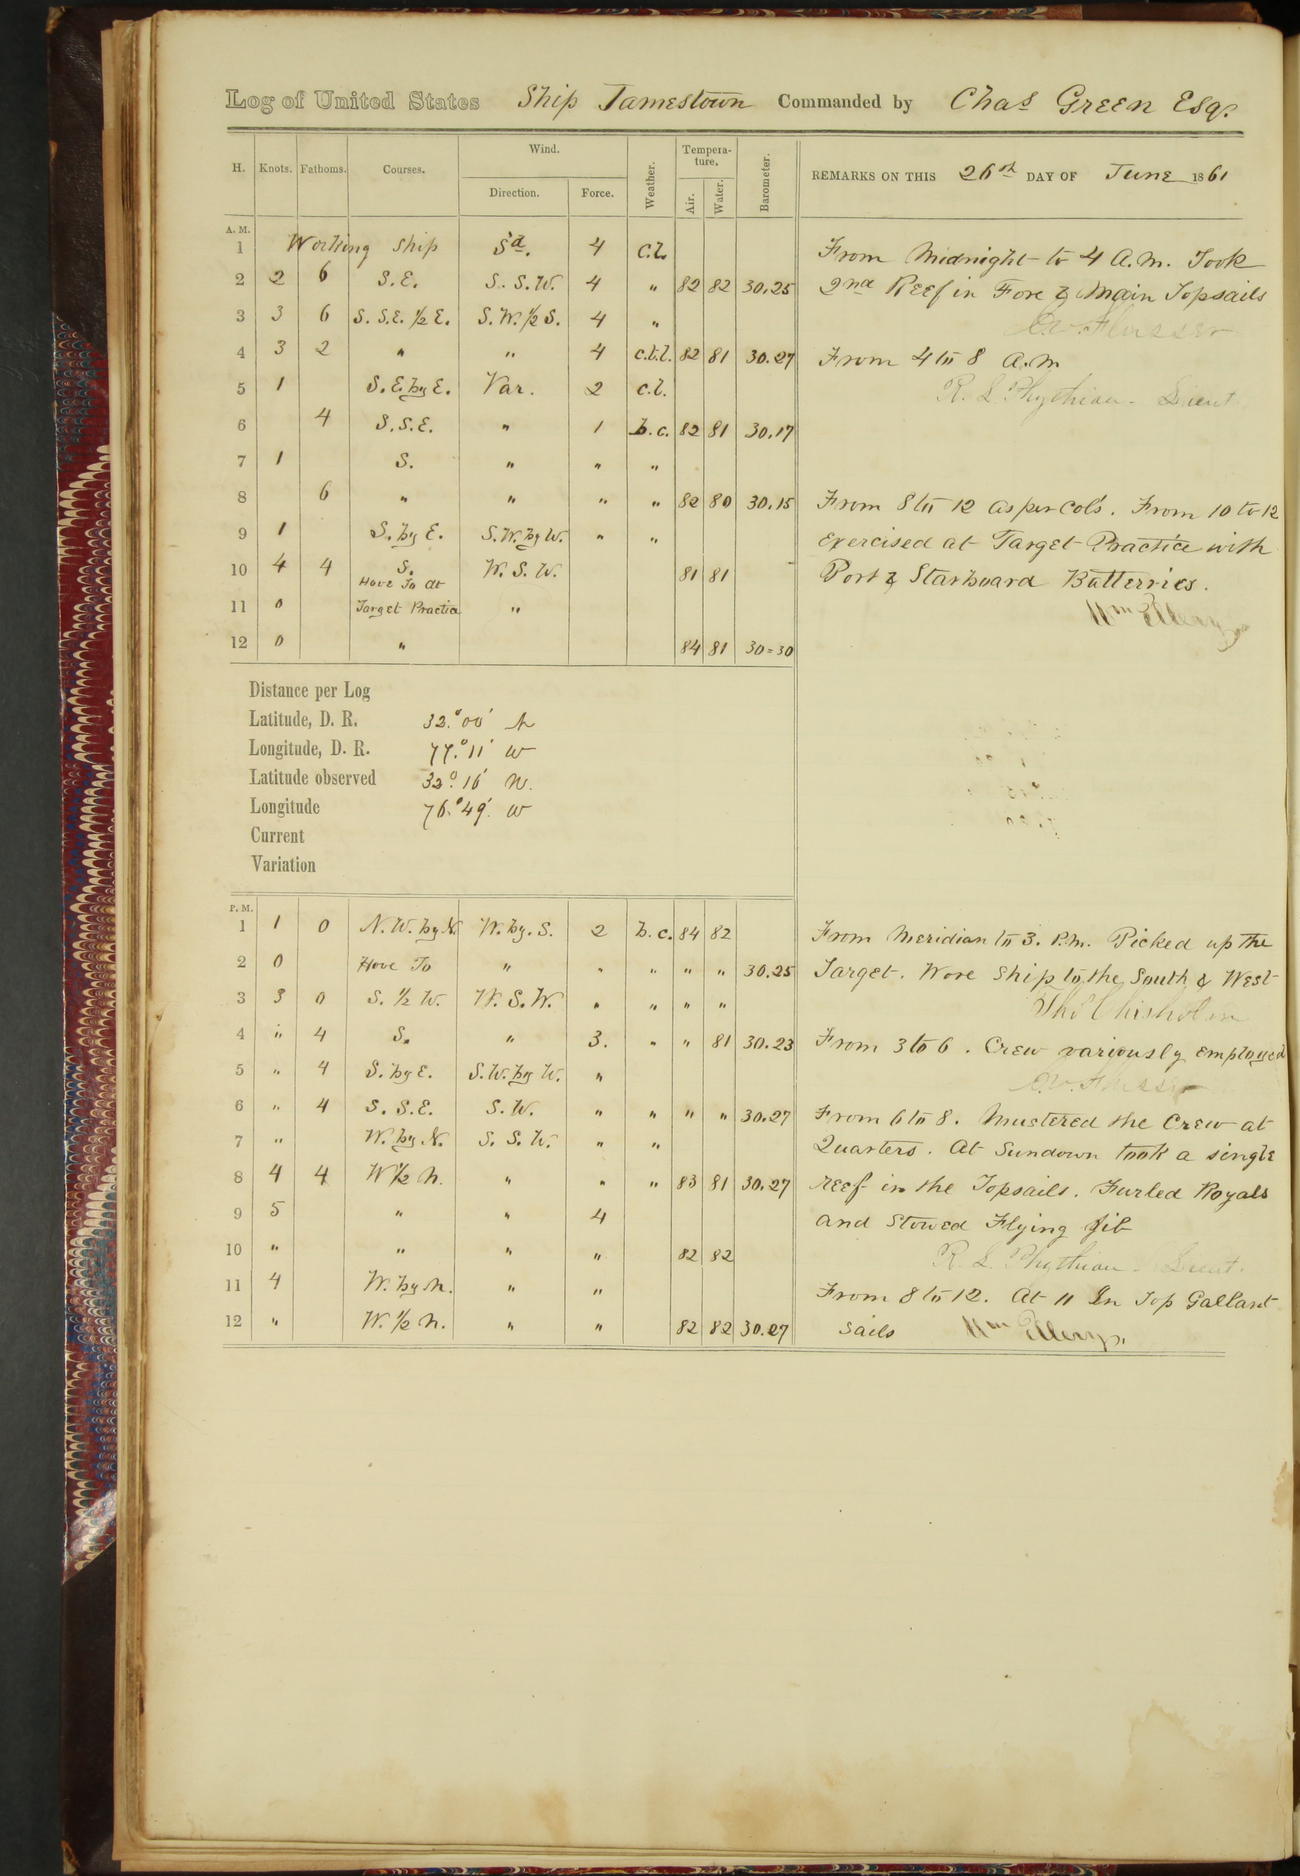 Log of United States Ship Jamestown Commanded by Chas Green Esq.
H. Knots. Fathoms. Courses. Wind. Direction. Force. Weather. Tempera-ture. Air. Water. Barometer. REMARKS ON THIS 26th DAY OF June 1861
A. M.
1 Working Ship Sd. 4 c.l. From Midnight to 4 A.M. Took
2 2 6 S.E. S.S.W. 4 " 82 82 30.25 2nd Reef in Fore & Main Topsails
3 3 6 S.S.E. 1/2 E. S.W. 1/2 S. 4 " C.W. Flusser
4 3 2 " " 4 c.t.l. 82 81 30.27 From 4 to 8 A.M
5 1 S.E. by E. Var. 2 c.l. R. L. Phythian - Lieut.
6 4 S.S.E. " 1 b.c. 82 81 30.17
7 1 S. " " "
8 6 " " " " 82 80 30.15 From 8 to 12 as per Col's. From 10 to 12
9 1 S. by E. S.W. by W. " " exercised at Target Practice with
10 4 4 S. W.S.W. 81 81 Port & Starboard Batterries.
Hove To At
11 0 Target Practice " Wm Ellery
12 0 " 84 81 30=30
Distance per Log
Latitude, D. R. 32.°00' N
Longitude, D. R. 77.°11' W
Latitude observed 32°.16' N.
Longitude 76.°49'. W
Current
Variation
P. M.
1 1 0 N.W. by N. W. by. S. 2 b.c. 84 82 From Meridian to 3. P.M. Picked up the
2 0 Hove To " " " " " 30.25 Target. Wore Ship to the South & West
3 3 0 S. 1/2 W. W.S.W. " " " " Tho' Chisholm
4 " 4 S. " 3. " " 81 30.23 From 3 to 6. Crew variously employed
5 " 4 S. by E. S.W. by W. " C.W. Flusser
6 " 4 S.S.E. S.W. " " " " 30.27 From 6 to 8. Mustered the Crew at
7 " W. by N. S.S.W. " " Quarters. At Sundown took a single
8 4 4 W 1/2 N. " " " 83 81 30.27 reef in the Topsails. Furled Royals
9 5 " " 4 and Stowed Flying Jib
10 " " " " 82 82 R. L. Phythian - Lieut.
11 4 W. by N. " " From 8 to 12. At 11 In Top Gallant
12 " W. 1/2 N. " " 82 82 30.27 Sails Wm Ellery.